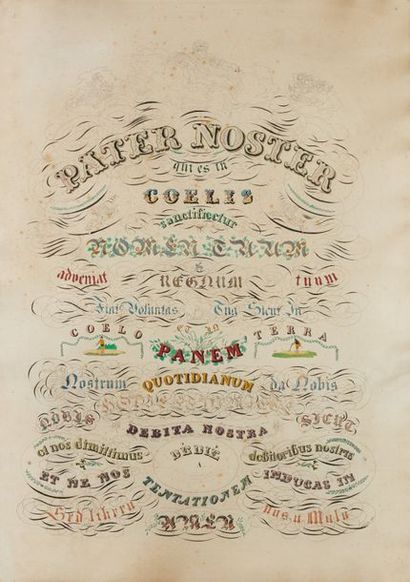 PATER NOSTER
qui es in
COELIS
sanctificetur
NOMEN TUUM
adveniat REGNUM tuum
Fiat Voluntas Tua Sicut In
COELO et in TERRA
PANEM
Nostrum QUOTIDIANUM da Nobis
NOBIS SICUT
DEBITA NOSTRA
et nos dimittimus debitoribus nostris
ET NE NOS INDUCAS IN
TENTATIONEM
Sed libera nos a Malo
AMEN